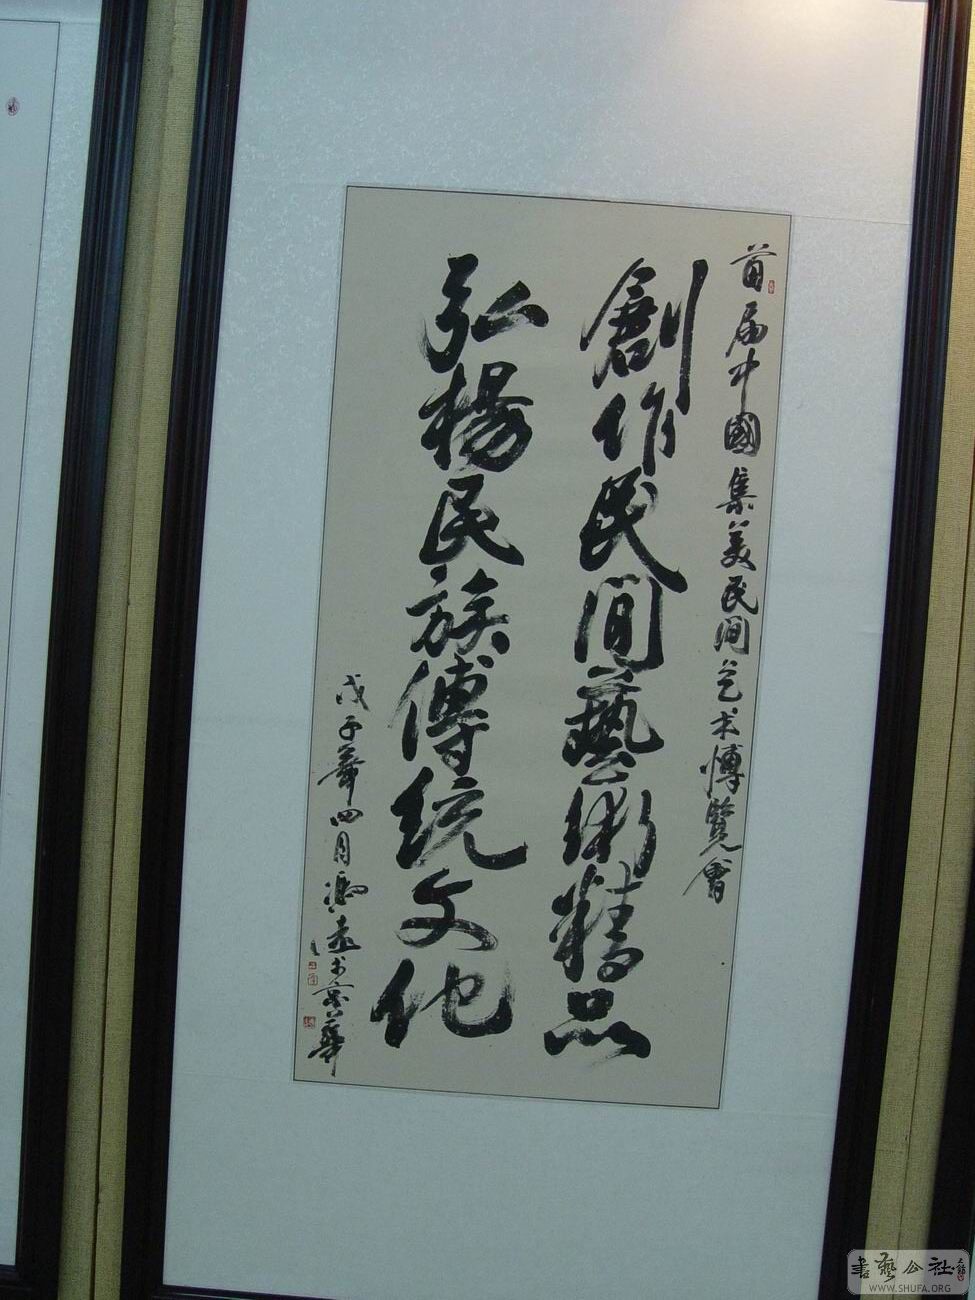 首届中國集美民间艺术博覽會
創作民間藝術精品
弘楊民族傳統文化
戊子年四月馮遠书京華
書藝公社
WWW.SHUFA.ORG